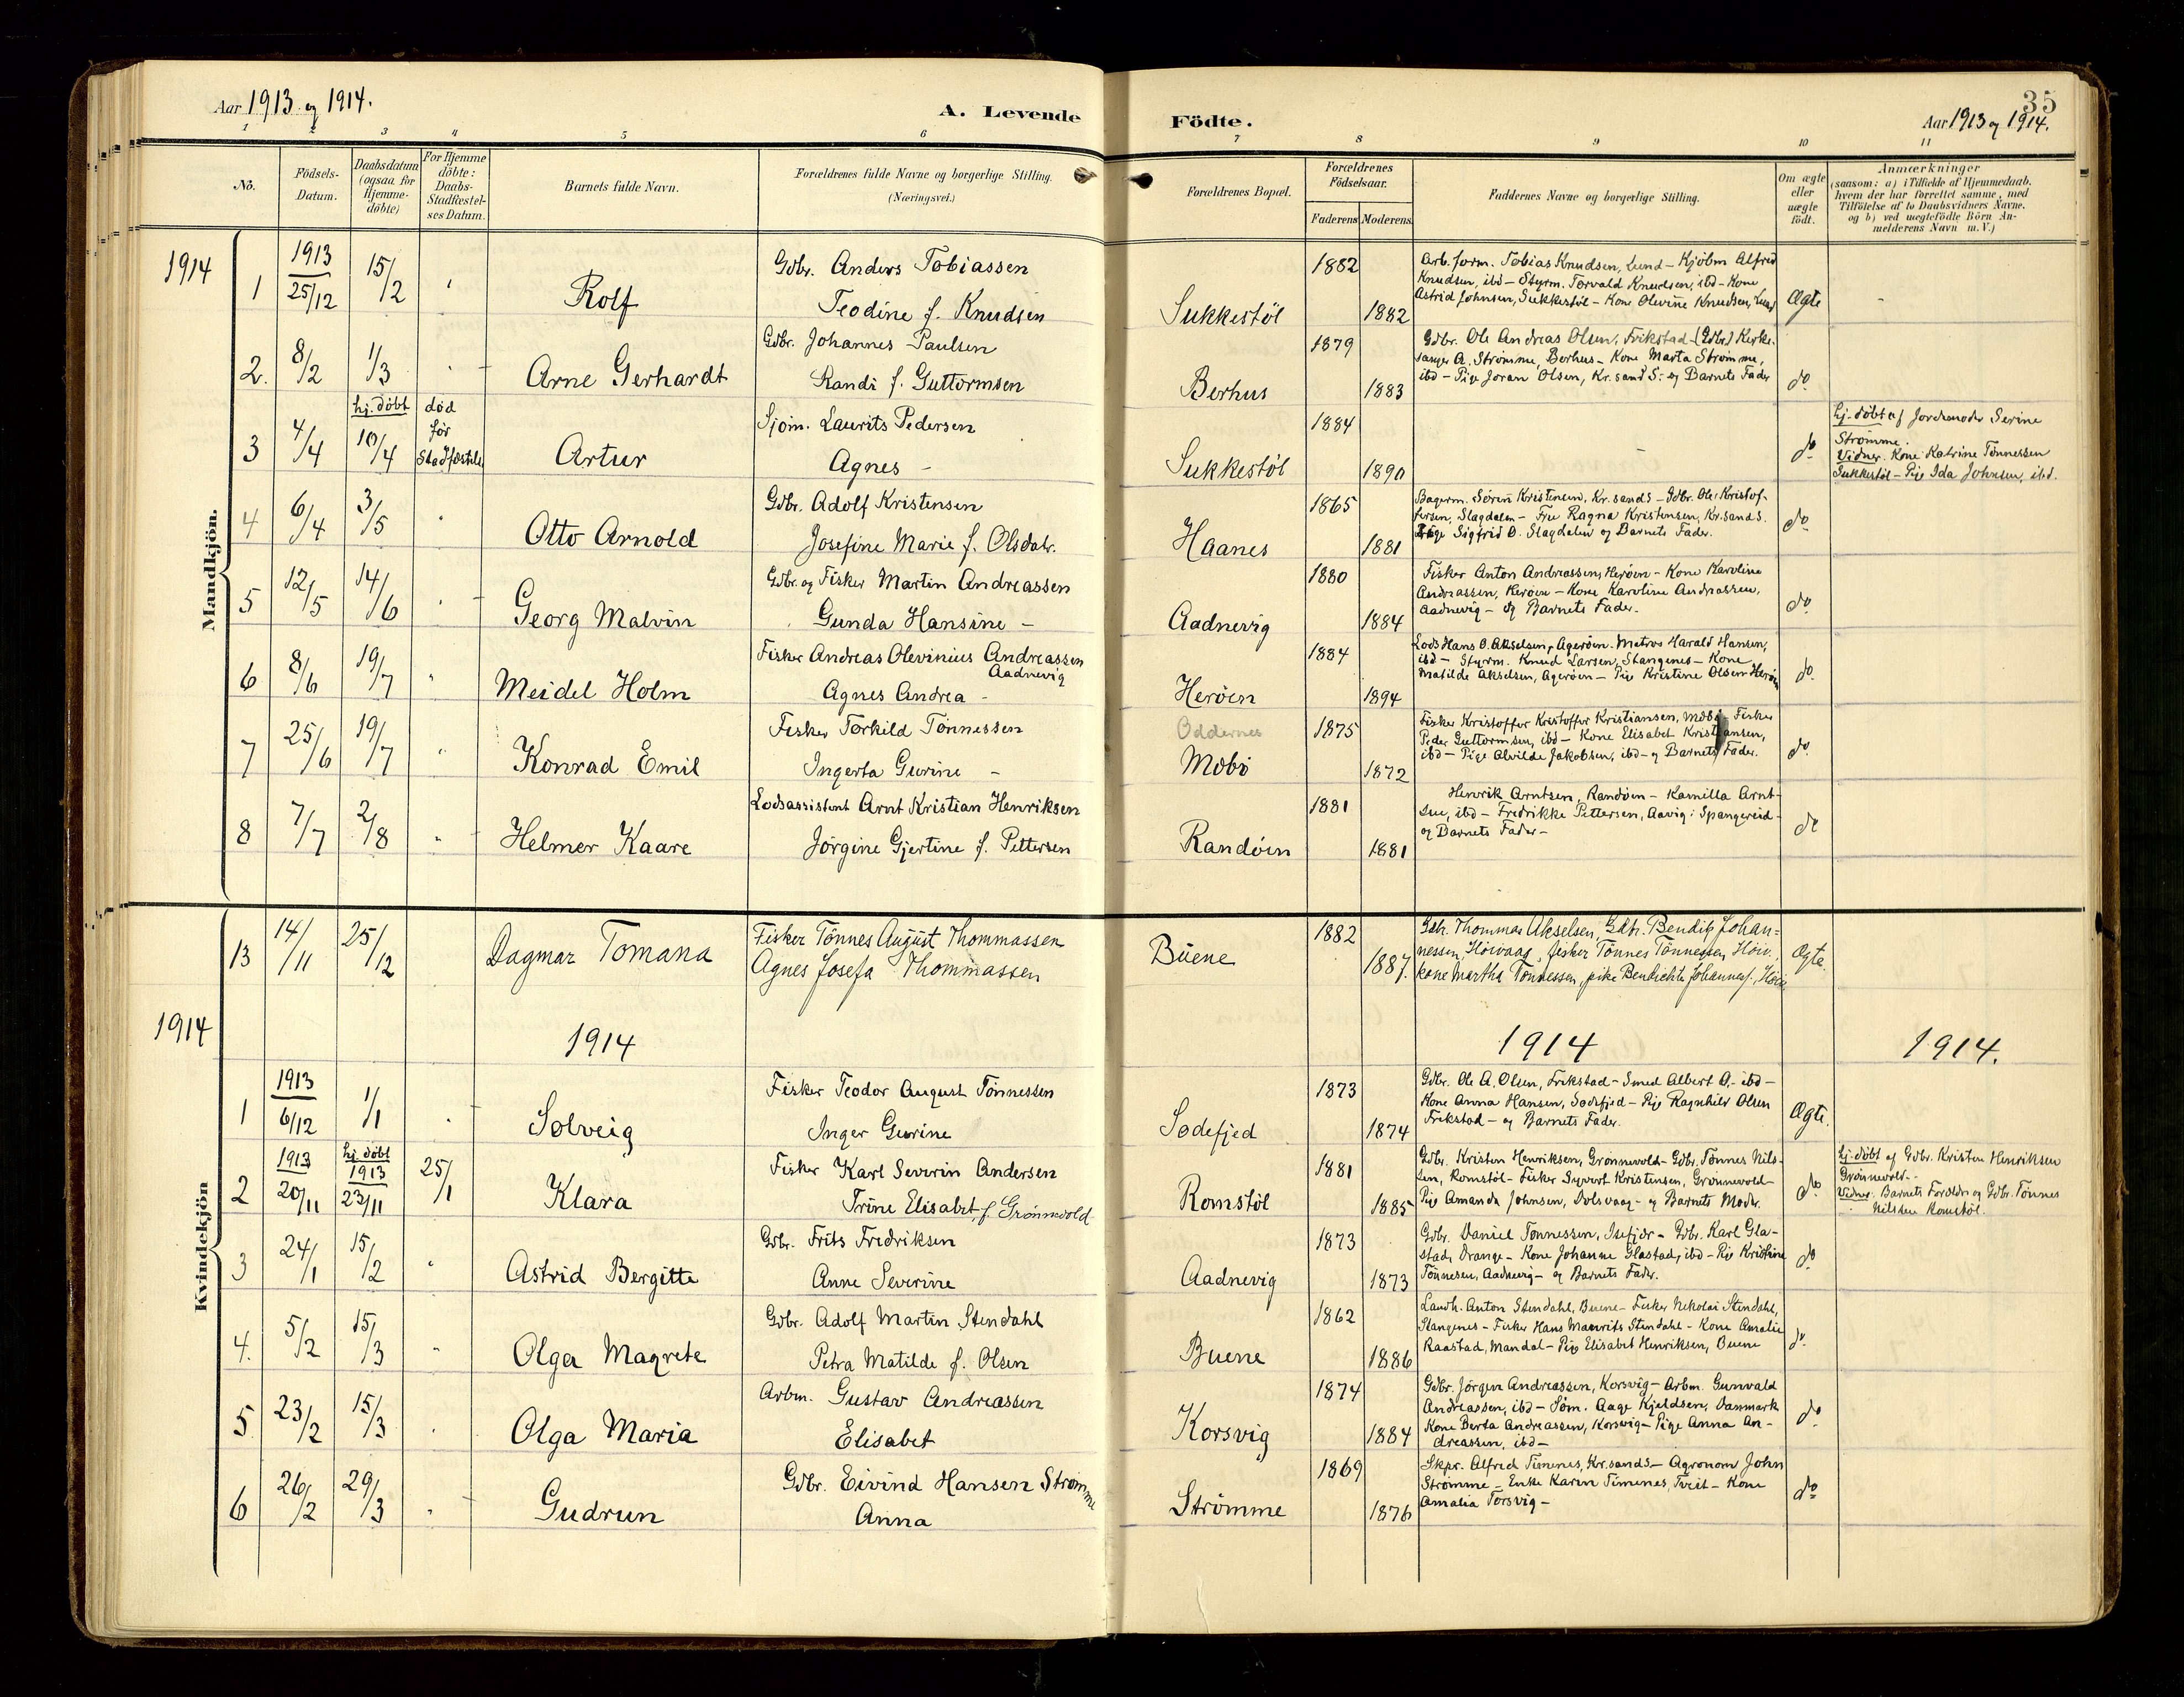 Aar 1913 og 1914.
A. Levende
Födte.
35
Aar 1913 og 1914.
1 2 3 4 5 6 7 8 9 10 11
No.
Födsels-Datum.
Daabsdatum (ogsaa for Hjemme-döbte)
For Hjemme döbte: Daabs-Stadfæstel-ses Datum.
Barnets fulde Navn.
Forældrenes fulde Navne og borgerlige Stilling.
(Næringsvei.)
Forældrenes Bopæl.
Forældrenes Födselsaar.
Faderens Moderens
Faddernes Navne og borgerlige Stilling.
Om ægte eller uægte födt.
Anmærkninger
(saasom: a) i Tilfælde af Hjemmedaab,
hvem der har forrettet samme, med
Tilföielse af to Daabsvidners Navne,
og b) ved uægtefödte Börn An-
melderens Navn m. V.)
Mandkjön.
1914
1 1913 25/12 15/2 " Rolf
Gdbr. Anders Tobiassen
Teodine f. Knudsen
Sukkestøl 1882 1882
Arb.form. Tobias Knudsen, Lund – Kjöbm Alfred
Knudsen, ibd – Styrm. Torvald Knudsen, ibd – Kone
Astrid Johnsen, Sukkestøl – Kone Olevine Knudsen, Lund
Ægte "
2. 8/2 1/3 " Arne Gerhardt
Gdbr. Johannes Paulsen
Randi f. Guttormsen
Berhus 1879 1883
Gdbr. Ole Andreas Olsen, Frikstad – (Gdbr) Kirke-
sanger A. Strømme, Berhus – Kone Marta Strømme,
ibd – Pige Joran Olsen, Kr.sand S. og Barnets Fader
do
3 4/4 hj. døbt 10/4 død før Stadfæstels Artur
Sjöm. Laurits Pedersen
Agnes –
Sukkestøl 1884 1890
do
hj. døbt af Jordemoder Serine
Strømme.
Vidner. Kone Katrine Tønnessen
Sukkestøl – Pige Ida Johnsen, ibd.
4 6/4 3/5 " Otto Arnold
Gdbr. Adolf Kristensen
Josefine Marie f. Olsdatr.
Haanes 1865 1881
Bagerm. Sören Kristensen, Kr.sand S – Gdbr. Ole Kristof-
fersen, Slagdalen – Frue Ragna Kristensen, Kr.sand S.
Pige Sigfrid O. Slagdalen og Barnets Fader.
do
5 12/5 14/6 " Georg Malvin
Gdbr. og Fisker Martin Andreassen
Gunda Hansine –
Aadnevig 1880 1884
Fisker Anton Andreassen, Herøen – Kone Karoline
Andreassen, Herøen – Kone Karoline Andreassen,
Aadnevig – og Barnets Fader.
do
6 8/6 19/7 " Meidel Holm
Fisker Andreas Olevinius Andreassen
Aadnevig
Agnes Andrea –
Herøen 1884 1894
Lods Hans O. Akselsen, Agerøen. Matros Harald Hansen,
ibd – Styrm. Knud Larsen, Stangenes – Kone
Matilde Akselsen, Agerøen – Pige Kristine Olsen Herøen
do
7 25/6 19/7 " Konrad Emil
Fisker Torkild Tønnessen
Ingerta Gurine –
Oddernes
Møbø 1875 1872
Fisker Kristoffer Kristoffer Kristiansen, Møbø – Fisker
Peder Guttormsen, ibd – Kone Elisabet Kristiansen,
ibd – Pige Alvilde Jakobsen, ibd – og Barnets Fader.
do
8 7/7 2/8 " Helmer Kaare
Lodsassistent Arnt Kristian Henriksen
Jörgine Gjertine f. Pettersen
Randøen 1881 1881
Henrik Arntsen, Randøen – Kamilla Arnt-
sen, ibd – Fredrikke Pettersen, Aavig i Spangereid
og Barnets Fader –
do
Kvindekjön
13 14/11 25/12 Dagmar Tomana
Fisker Tønnes August Thommassen
Agnes Josefa Thommassen
Buene 1882 1887.
Gdbr. Thommas Akselsen, Gdbr. Bendik Johan-
nessen, Høivaag, fisker Tönnes Tönnessen, Høiv.,
kone Martha Tønnessen, pike Bendichte Johannes., Høiv.
Ægte.
1914 1914 1914 1914.
1 1913 6/12 1/1 " Solveig
Fisker Teodor August Tønnessen
Inger Gurine
Sodefjed 1873 1874
Gdbr. Ole A. Olsen, Frikstad – Smed Albert O. – ibd –
Kone Anna Hansen, Sodefjed – Pige Ragnhild Olsen
Frikstad – og Barnets Fader.
Ægte.
2 1913 20/11 hj. døbt 1913 23/11 25/1 Klara
Fisker Karl Severin Andersen
Trine Elisabet, f. Grønnevold
Romstøl 1881 1885
Gdbr. Kristen Henriksen, Grønnevold – Gdbr. Tønnes Nils-
sen, Romstøl – Fisker Sigvert Kristensen, Grønnevold –
Pige Amanda Johnsen, Dolsvaag – og Barnets Moder.
do
hj. døbt af Gdbr. Kristen Henriksen
Grønnevold. –
Vidner. Barnets Forældre og Gdbr. Tønnes
Nilssen Romstøl.
3 24/1 15/2 " Astrid Bergitte
Gdbr. Frits Fredriksen
Anne Severine
Aadnevig 1873 1873
Gdbr. Daniel Tønnessen, Isefjær – Gdbr. Karl Gla-
stad, Drange – Kone Johanne Glastad, ibd – Pige Kristine
Tønnesen, Aadnevig – og Barnets Fader.
do
4. 5/2 15/3 " Olga Magrete
Gdbr. Adolf Martin Stendahl
Petra Matilde f. Olsen
Buene 1862 1886
Landh. Anton Stendahl, Buene – Fisker Nikolai Stendahl,
Stangenes – Fisker Hans Maurits Stendahl – Kone Amalie
Raastad, Mandal – Pige Elisabet Henriksen, Buene
do
5 23/2 15/3 " Olga Maria
Arbm. Gustav Andreassen
Elisabet
Korsvig 1874 1884
Gdbr. Jörgen Andreassen, Korsvig – Arbm. Gunvald
Andreassen, ibd – Søm. Aage Kjeldsen, Danmark
Kone Berta Andreassen, Korsvig – Pige Anna An-
dreassen, ibd –
do
6 26/2 29/3 " Gudrun
Gdbr. Eivind Hansen Strømme
Anna
Strømme 1869 1876
Skpr. Alfred Timenes, Kr.sand S – Agronom John
Strømme – Enke Karen Timenes, Tveit – Kone
Amalia Torsvig –
do